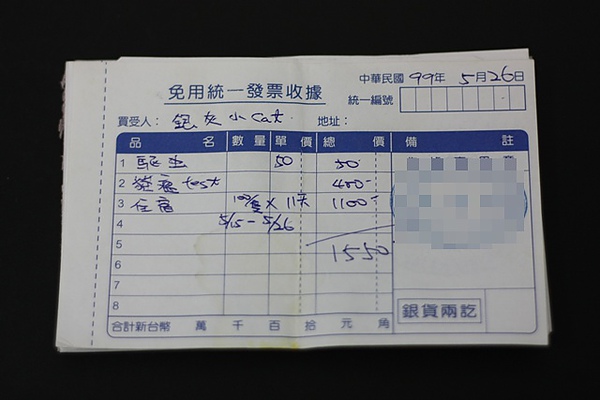 中華民國 99年 5月26日
免用統一發票收據
統一編號
買受人： 銀灰小cat. 地址：
品名 數量 單價 總價 備註
1 驅虫 50 50
2 貓瘟test 400-
3 住宿 100/隻 x 11天 1100-
4 5/15-5/26
5 1550
6
7
8
銀貨兩訖
合計新台幣 萬 千 百 拾 元 角